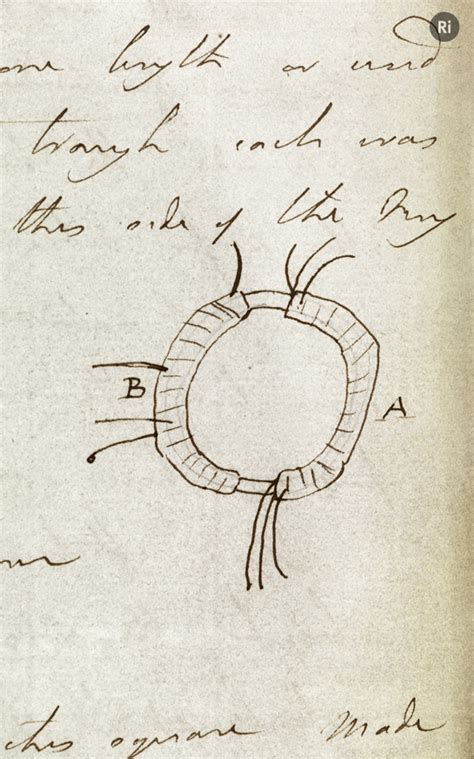 Ri
one length or used
trough each was
this side of the Ring
B
A
ches square Made